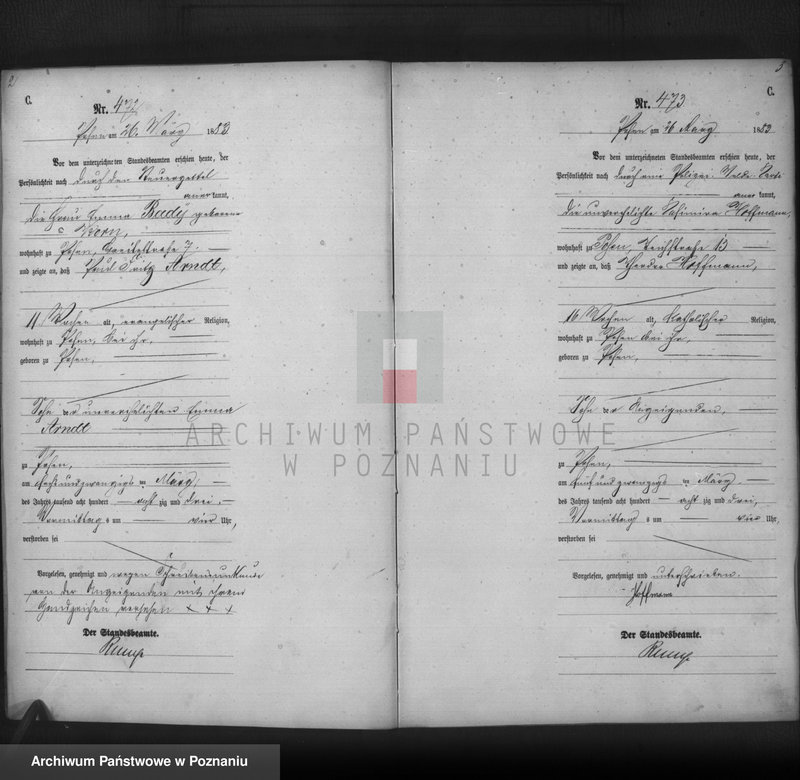 2
C.
Nr. 472
Posen am 26 März 1883
Vor dem unterzeichneten Standesbeamten erschien heute, der
Persönlichkeit nach durch den
aner kannt,
die Frau Emma geborene
wohnhaft zu Posen, 7
und zeigte an, daß Paul Fritz Arndt,
11 Wochen alt, evangelischer Religion,
wohnhaft zu Posen, bei ihr,
geboren zu Posen,
Sohn der unverehelichten Emma
Arndt
zu Posen,
am sechsundzwanzigsten März
des Jahres tausend acht hundert acht zig und drei
Vormittag s um vier Uhr,
verstorben sei
Vorgelesen, genehmigt und wegen Schreibensunkunde
von der Anzeigenden mit ihrem
Handzeichen versehen + + +
Der Standesbeamte.
Rump
5
C.
Nr. 473
Posen am 26 März 1883
Vor dem unterzeichneten Standesbeamten erschien heute, der
Persönlichkeit nach durch eine Polizei
aner kannt,
die unverehelichte Kasimira Hoffmann,
wohnhaft zu Posen, Teichstraße 13
und zeigte an, daß Theodor Hoffmann,
16 Wochen alt, katholischer Religion,
wohnhaft zu Posen bei ihr,
geboren zu Posen,
Sohn der Anzeigenden,
zu Posen,
am sechsundzwanzigsten März
des Jahres tausend acht hundert acht zig und drei,
Vormittag s um vier Uhr,
verstorben sei
Vorgelesen, genehmigt und unterschrieben.
Hoffmann
Der Standesbeamte.
Rump
ARCHIWUM PAŃSTWOWE
W POZNANIU
Archiwum Państwowe w Poznaniu